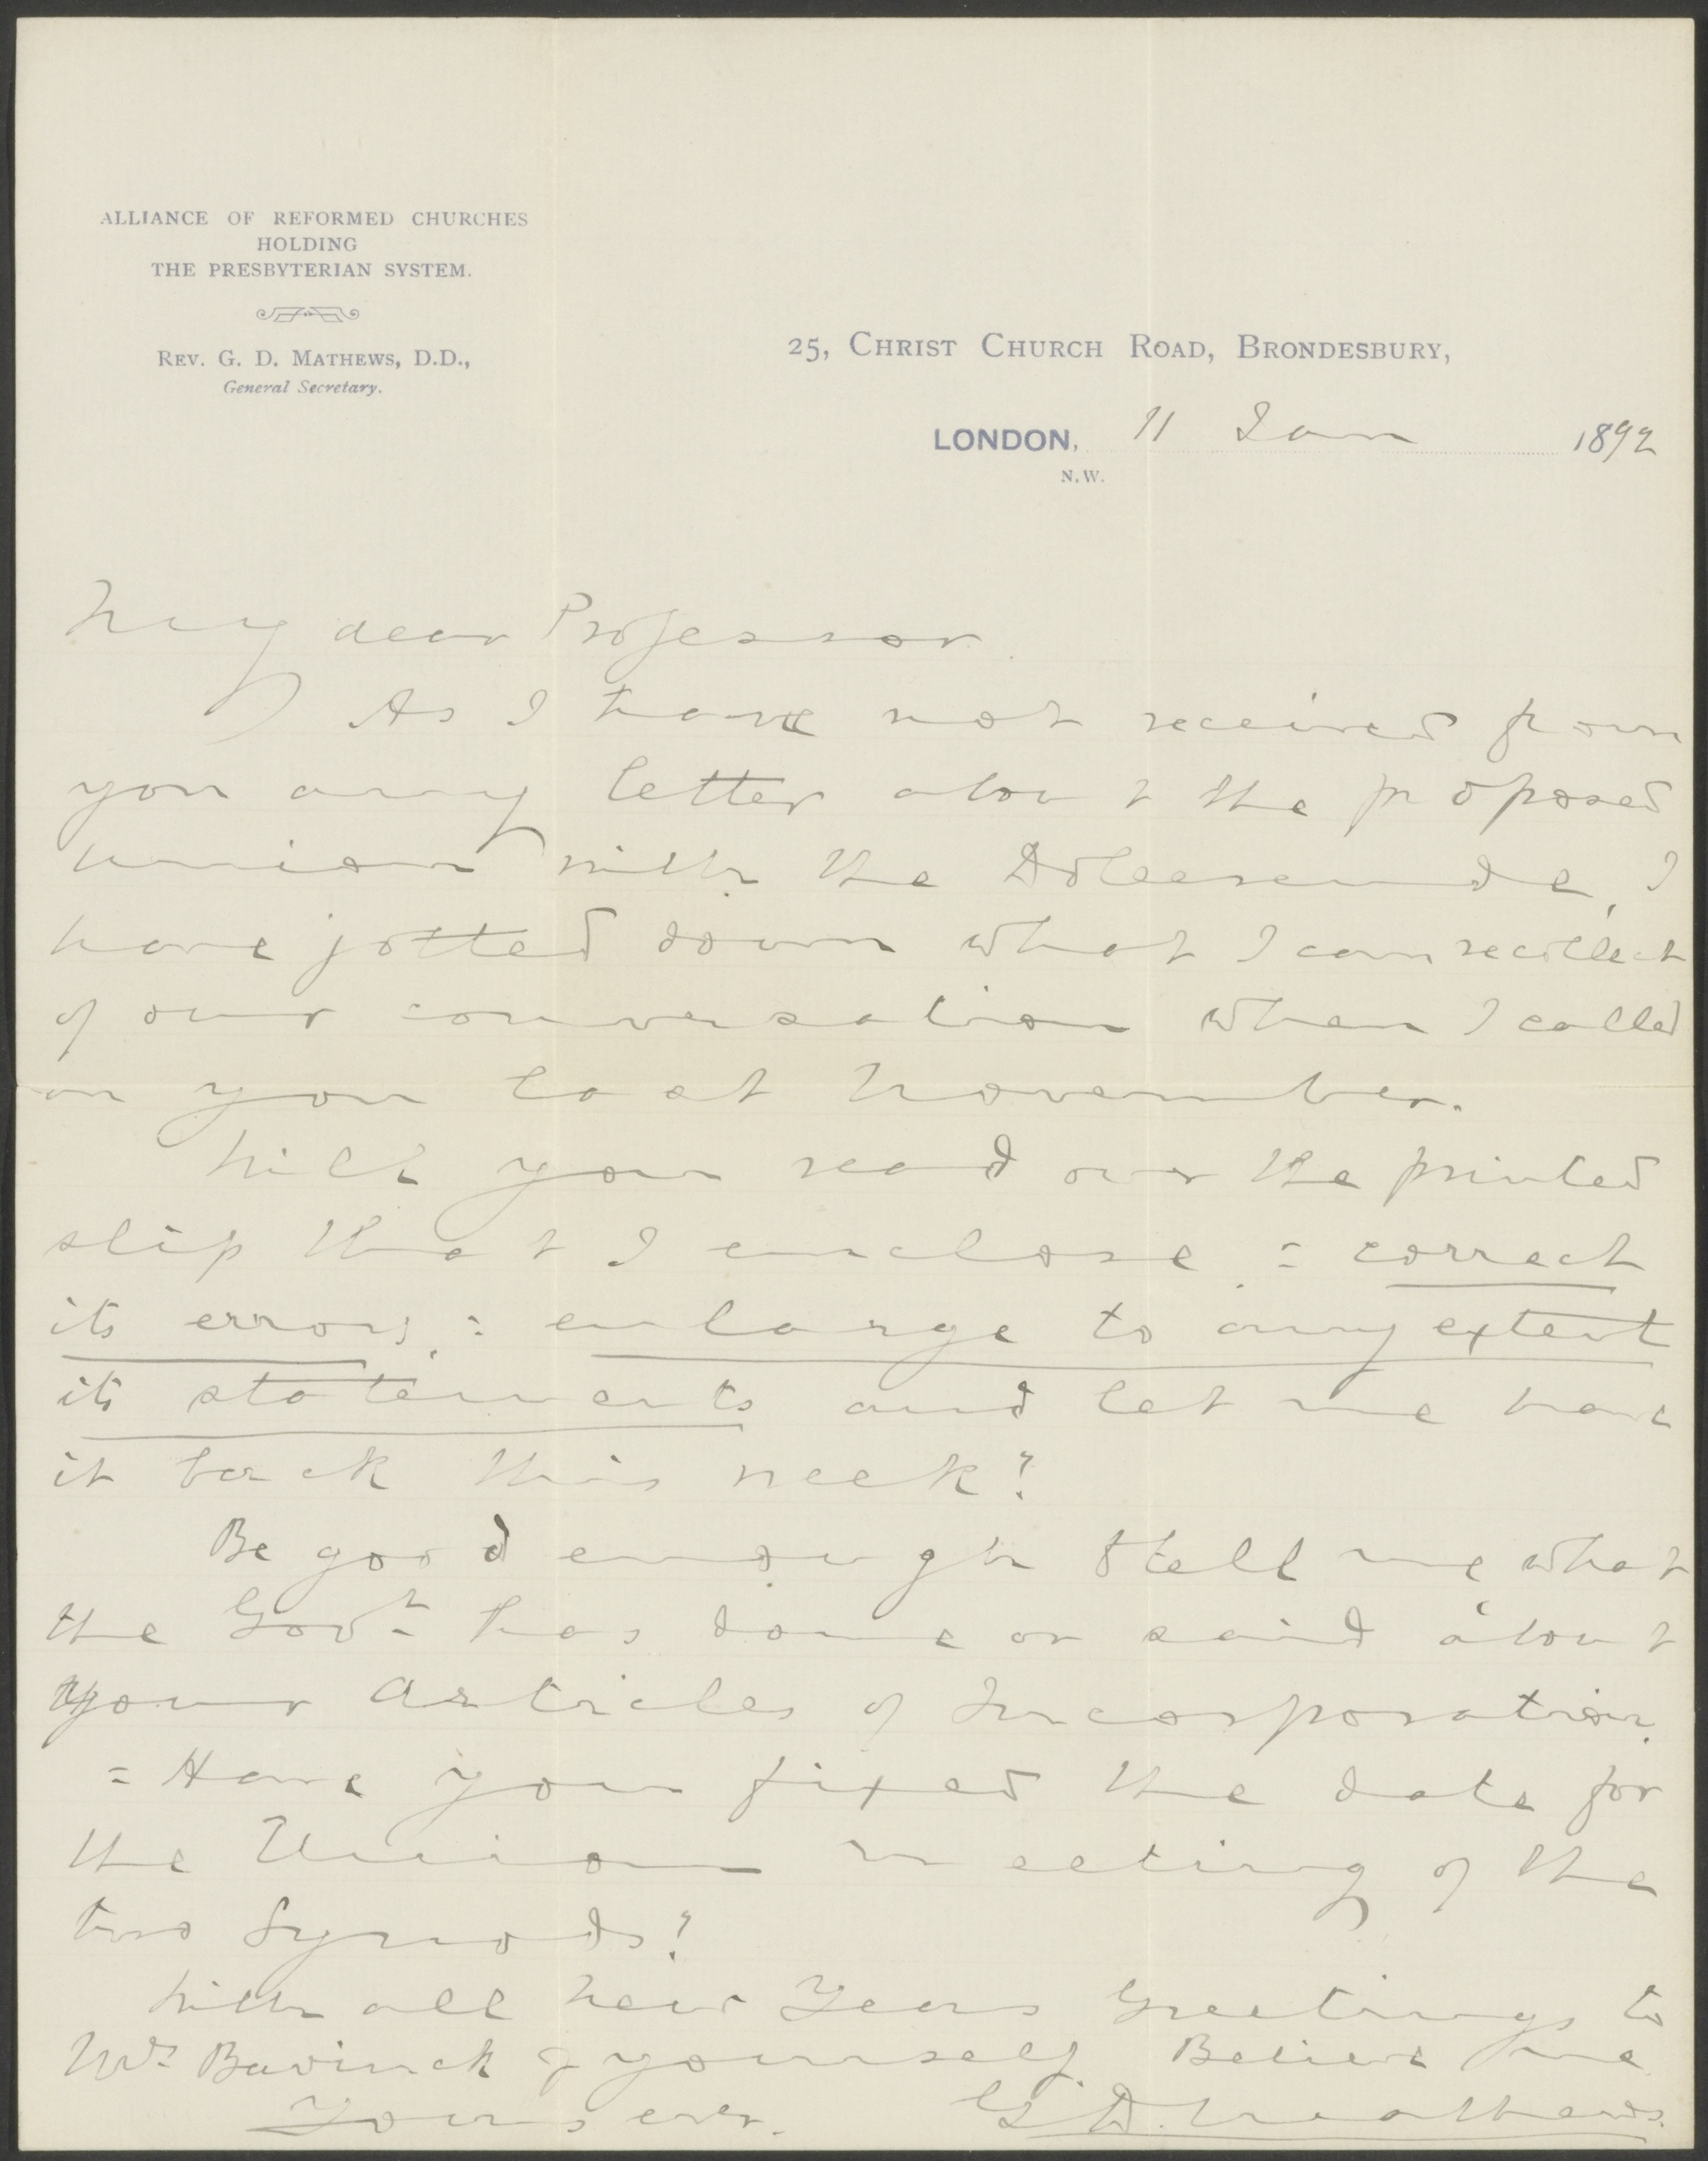 ALLIANCE OF REFORMED CHURCHES
HOLDING
THE PRESBYTERIAN SYSTEM.
REV. G. D. MATHEWS, D.D.,
General Secretary.
25, CHRIST CHURCH ROAD, BRONDESBURY,
LONDON, 11 Jan 1892
N.W.
My dear Professor.
As I have not received from
you any letter about the proposed
union with the Doleerende, I
have jotted down what I can recollect
of our conversation when I called
on you last November.
Will you read over the printed
slip that I enclose, = correct
its errors, = enlarge to any extent
its statements and let me have
it back this week?
Be good enough to tell me what
the Govt has done or said about
your Articles of Incorporation.
= Have you fixed the date for
the Union meeting of the
two Synods?
With all New Years Greetings to
Mrs Bavinck & yourself. Believe me
Yours ever. G. D. Mathews.